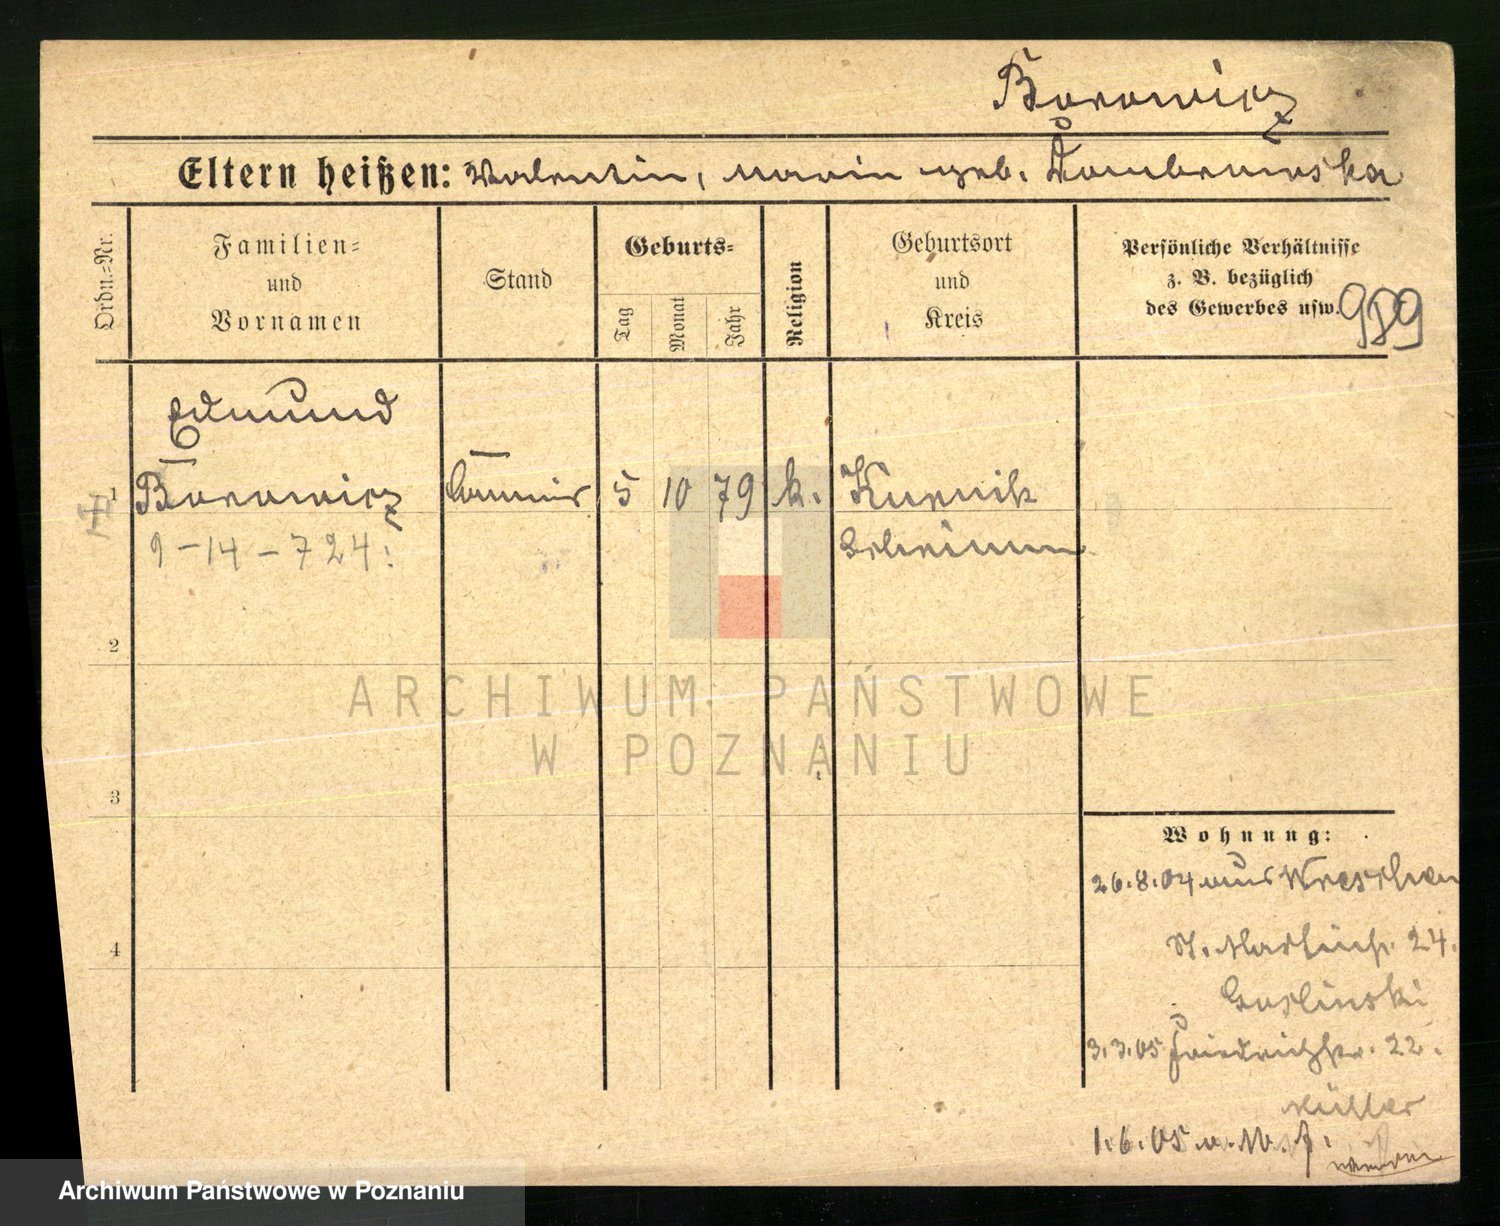 Borowicz
Eltern heißen: Valentin, Marie geb. Dombrowska
Ordn.-Nr.
Familien-
und
Vornamen
Stand
Geburts-
Tag
Monat
Jahr
Religion
Geburtsort
und
Kreis
Persönliche Verhältnisse
z. B. bezüglich
des Gewerbes usw.
989
Edmund
1 Borowicz Commis 5 10 79 k. Kurnik
9-14-724: Schrimm
2
ARCHIWUM PAŃSTWOWE
W POZNANIU
3
Wohnung:
26.8.04 aus Wreschen
4
St. Martinstr. 24.
Goslinski
3.3.05 Friedrichstr. 22.
Müller
1.6.05
Archiwum Państwowe w Poznaniu